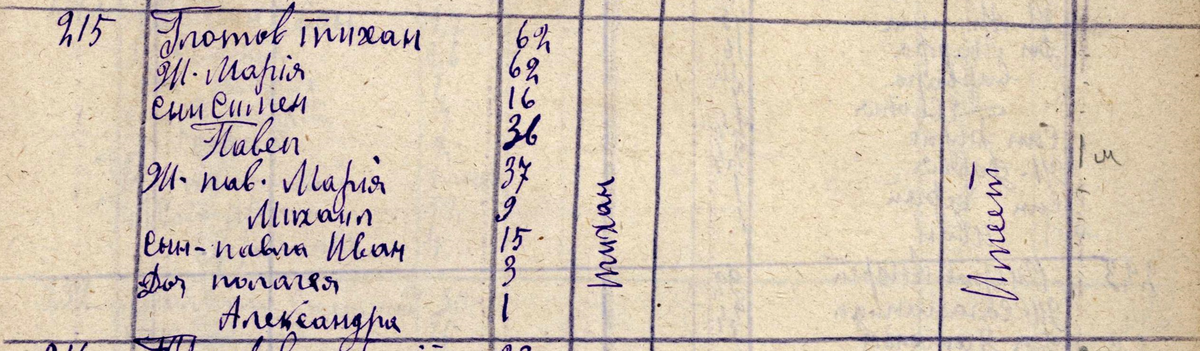 215 Глотов Тихан 62
Ж. Марія 62
сын Симен 16
Павел 36
Ж. пав. Марія 37
Михаил 9
сын - павла Иван 15
Доч полагея 3
Александра 1
тихан
Имеет
1 м